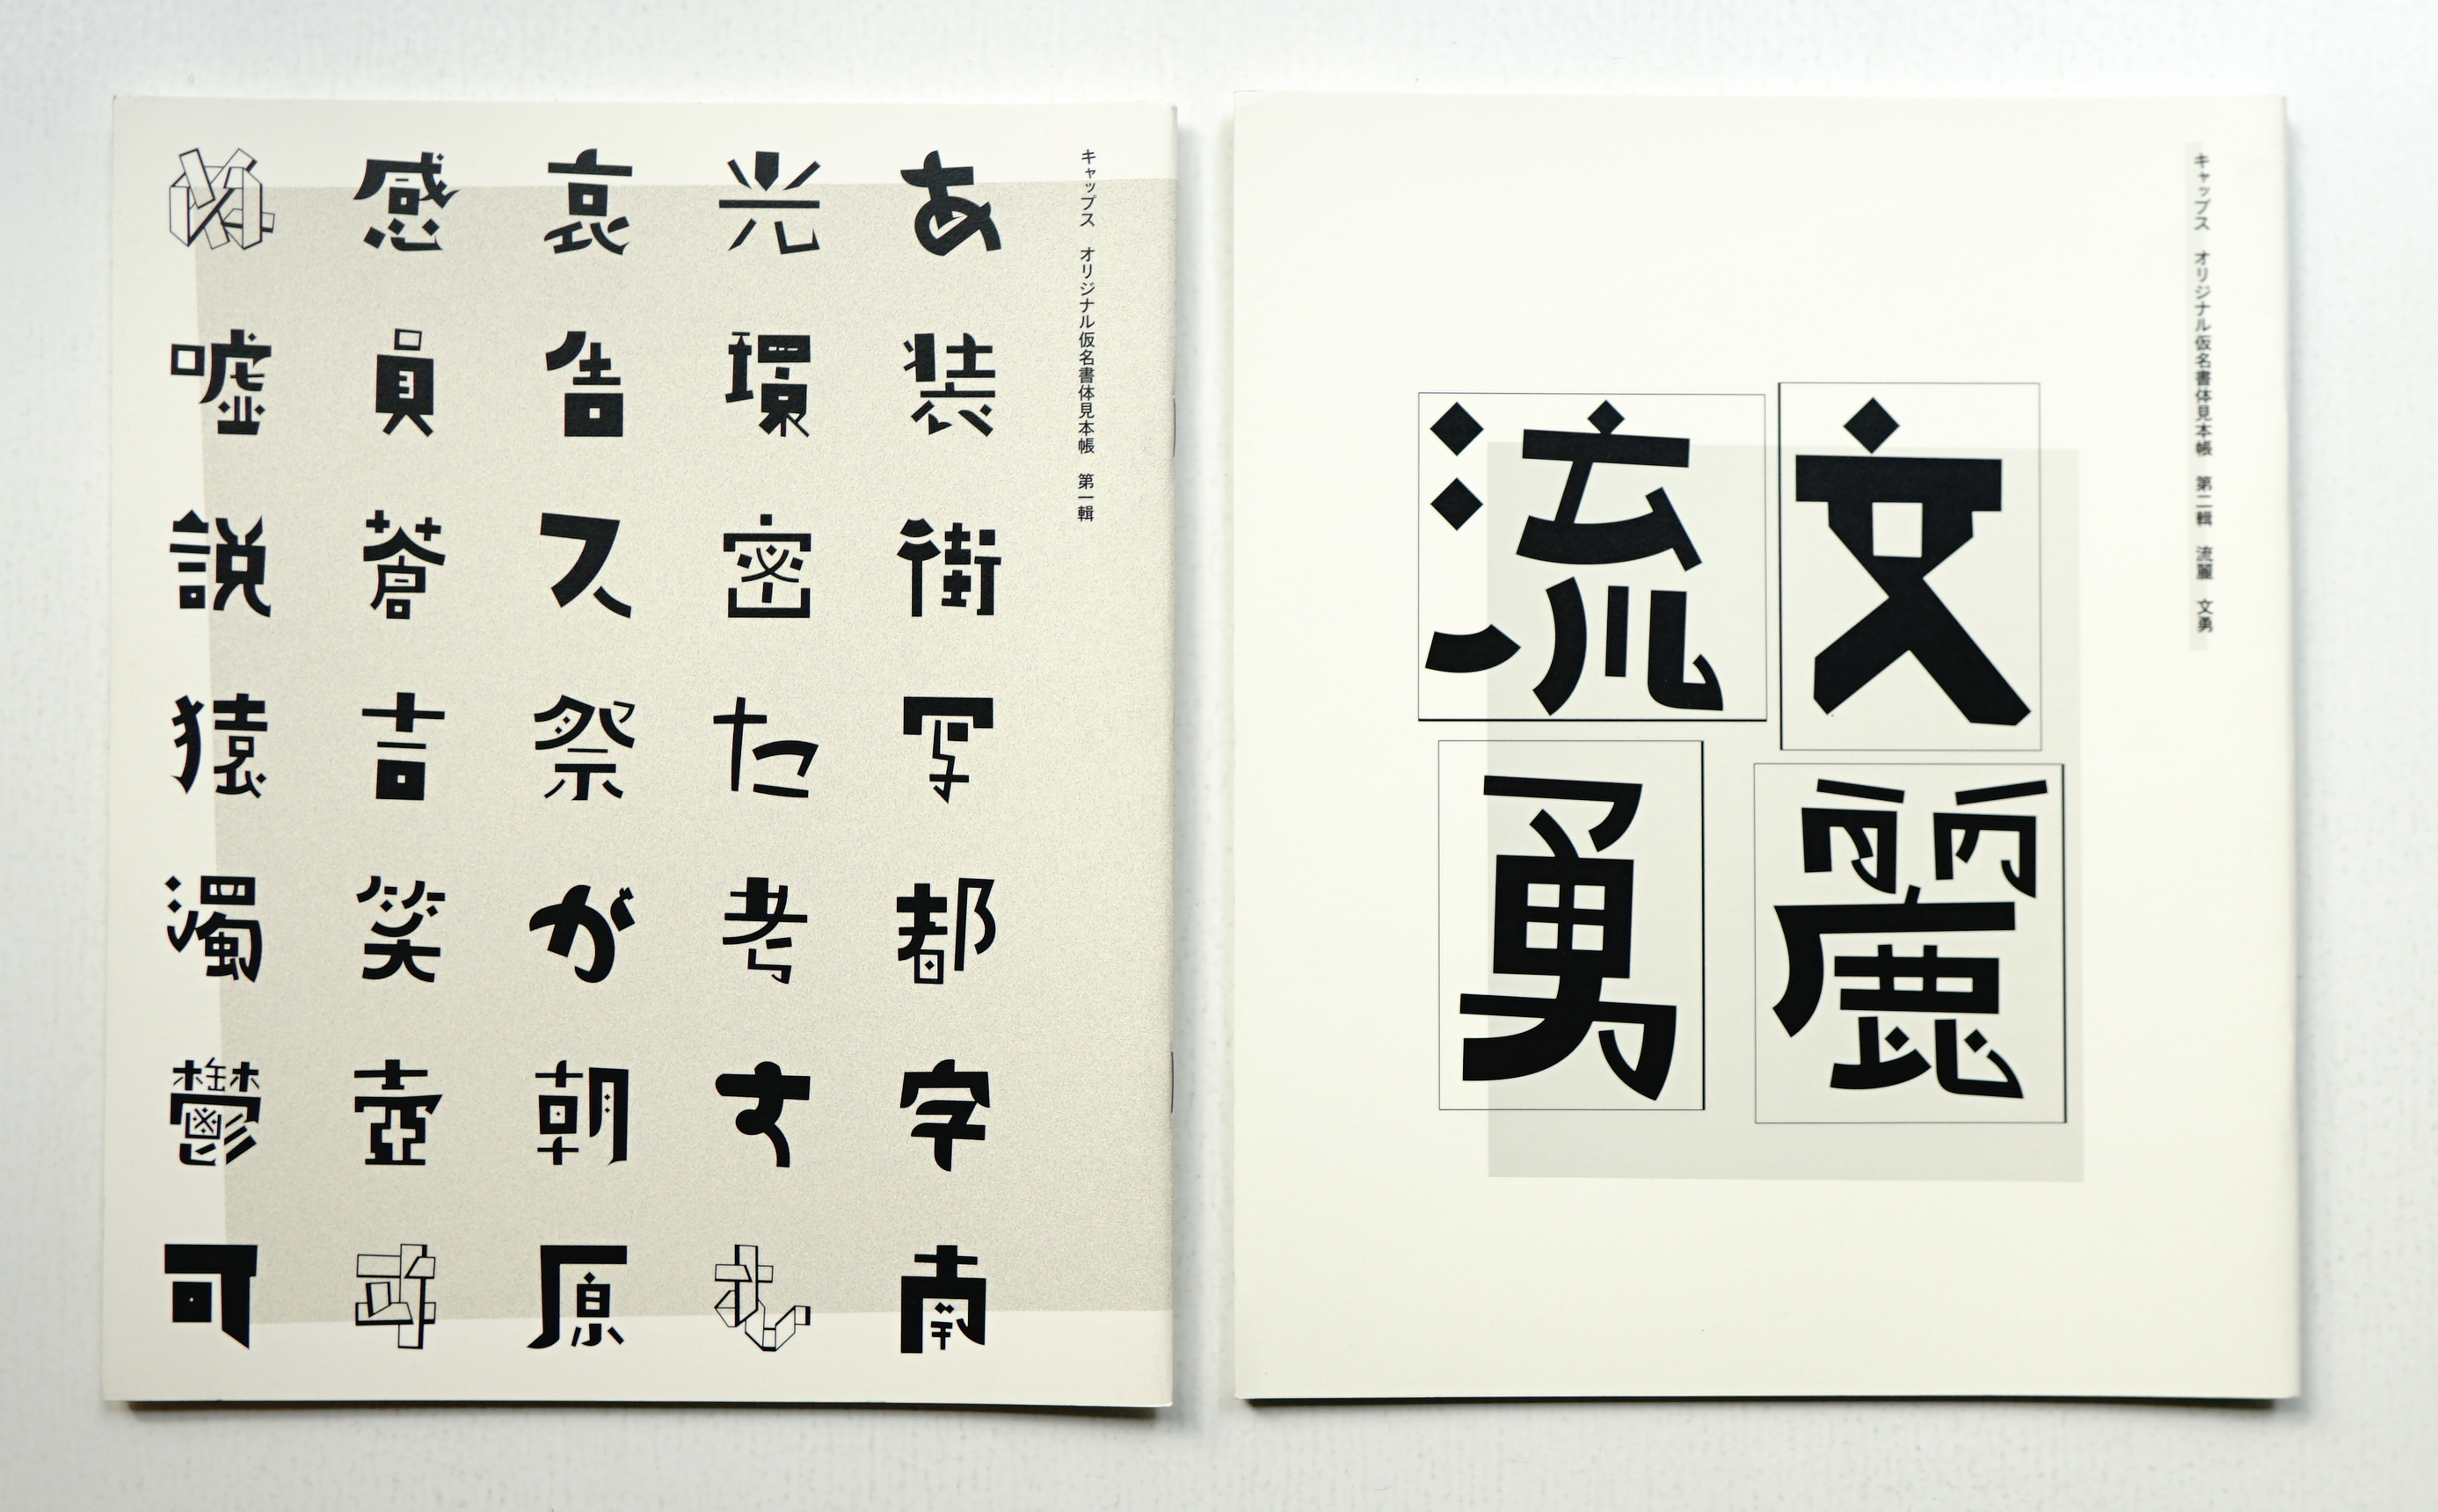 キャップス オリジナル仮名書体見本帳 第一輯
あ装街写都字南
光環密た考す
哀告ス祭が朝原
感員蒼吉笑壺
嘘説猿濁鬱可
キャップス オリジナル仮名書体見本帳 第二輯 流麗 文勇
文麗
流勇